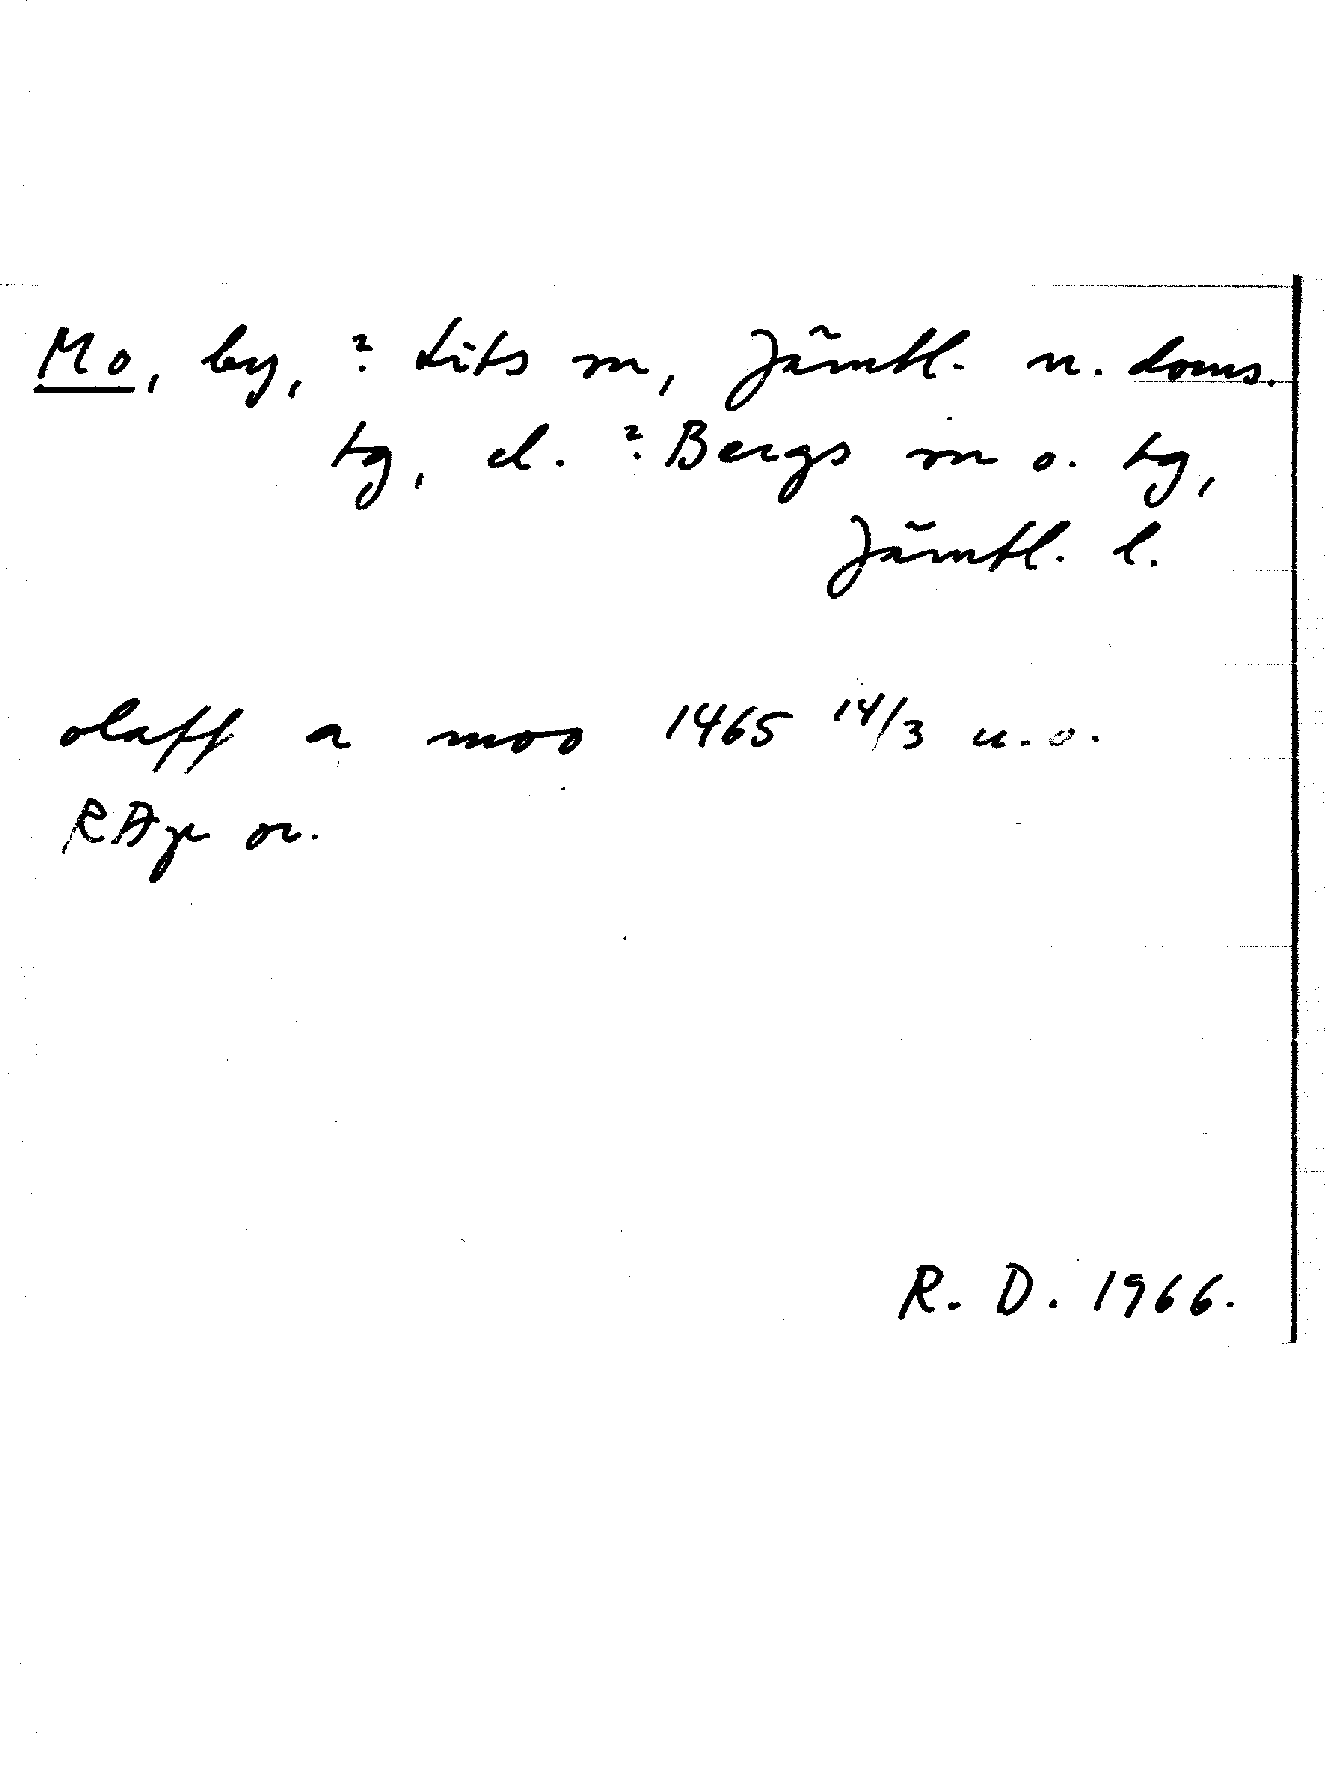 Mo, by, ? Lits sn, Jämtl. n. doms.
tg, el. ? Bergs sn o. tg,
Jämtl. l.
olaff a moo 1465 14/3 u.o.
RAp or.
R. D. 1966.